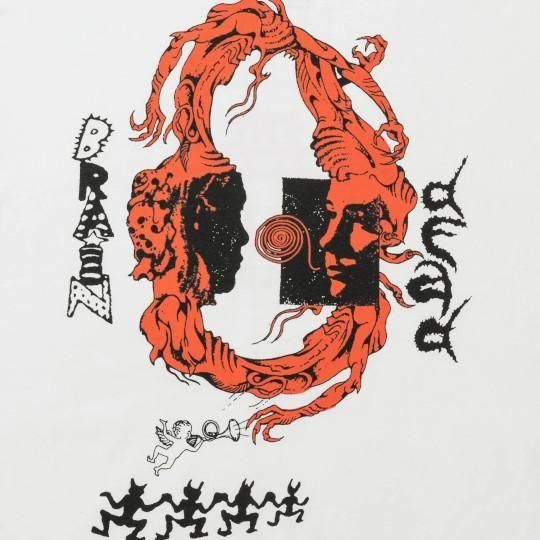 BRAIN
DEAD